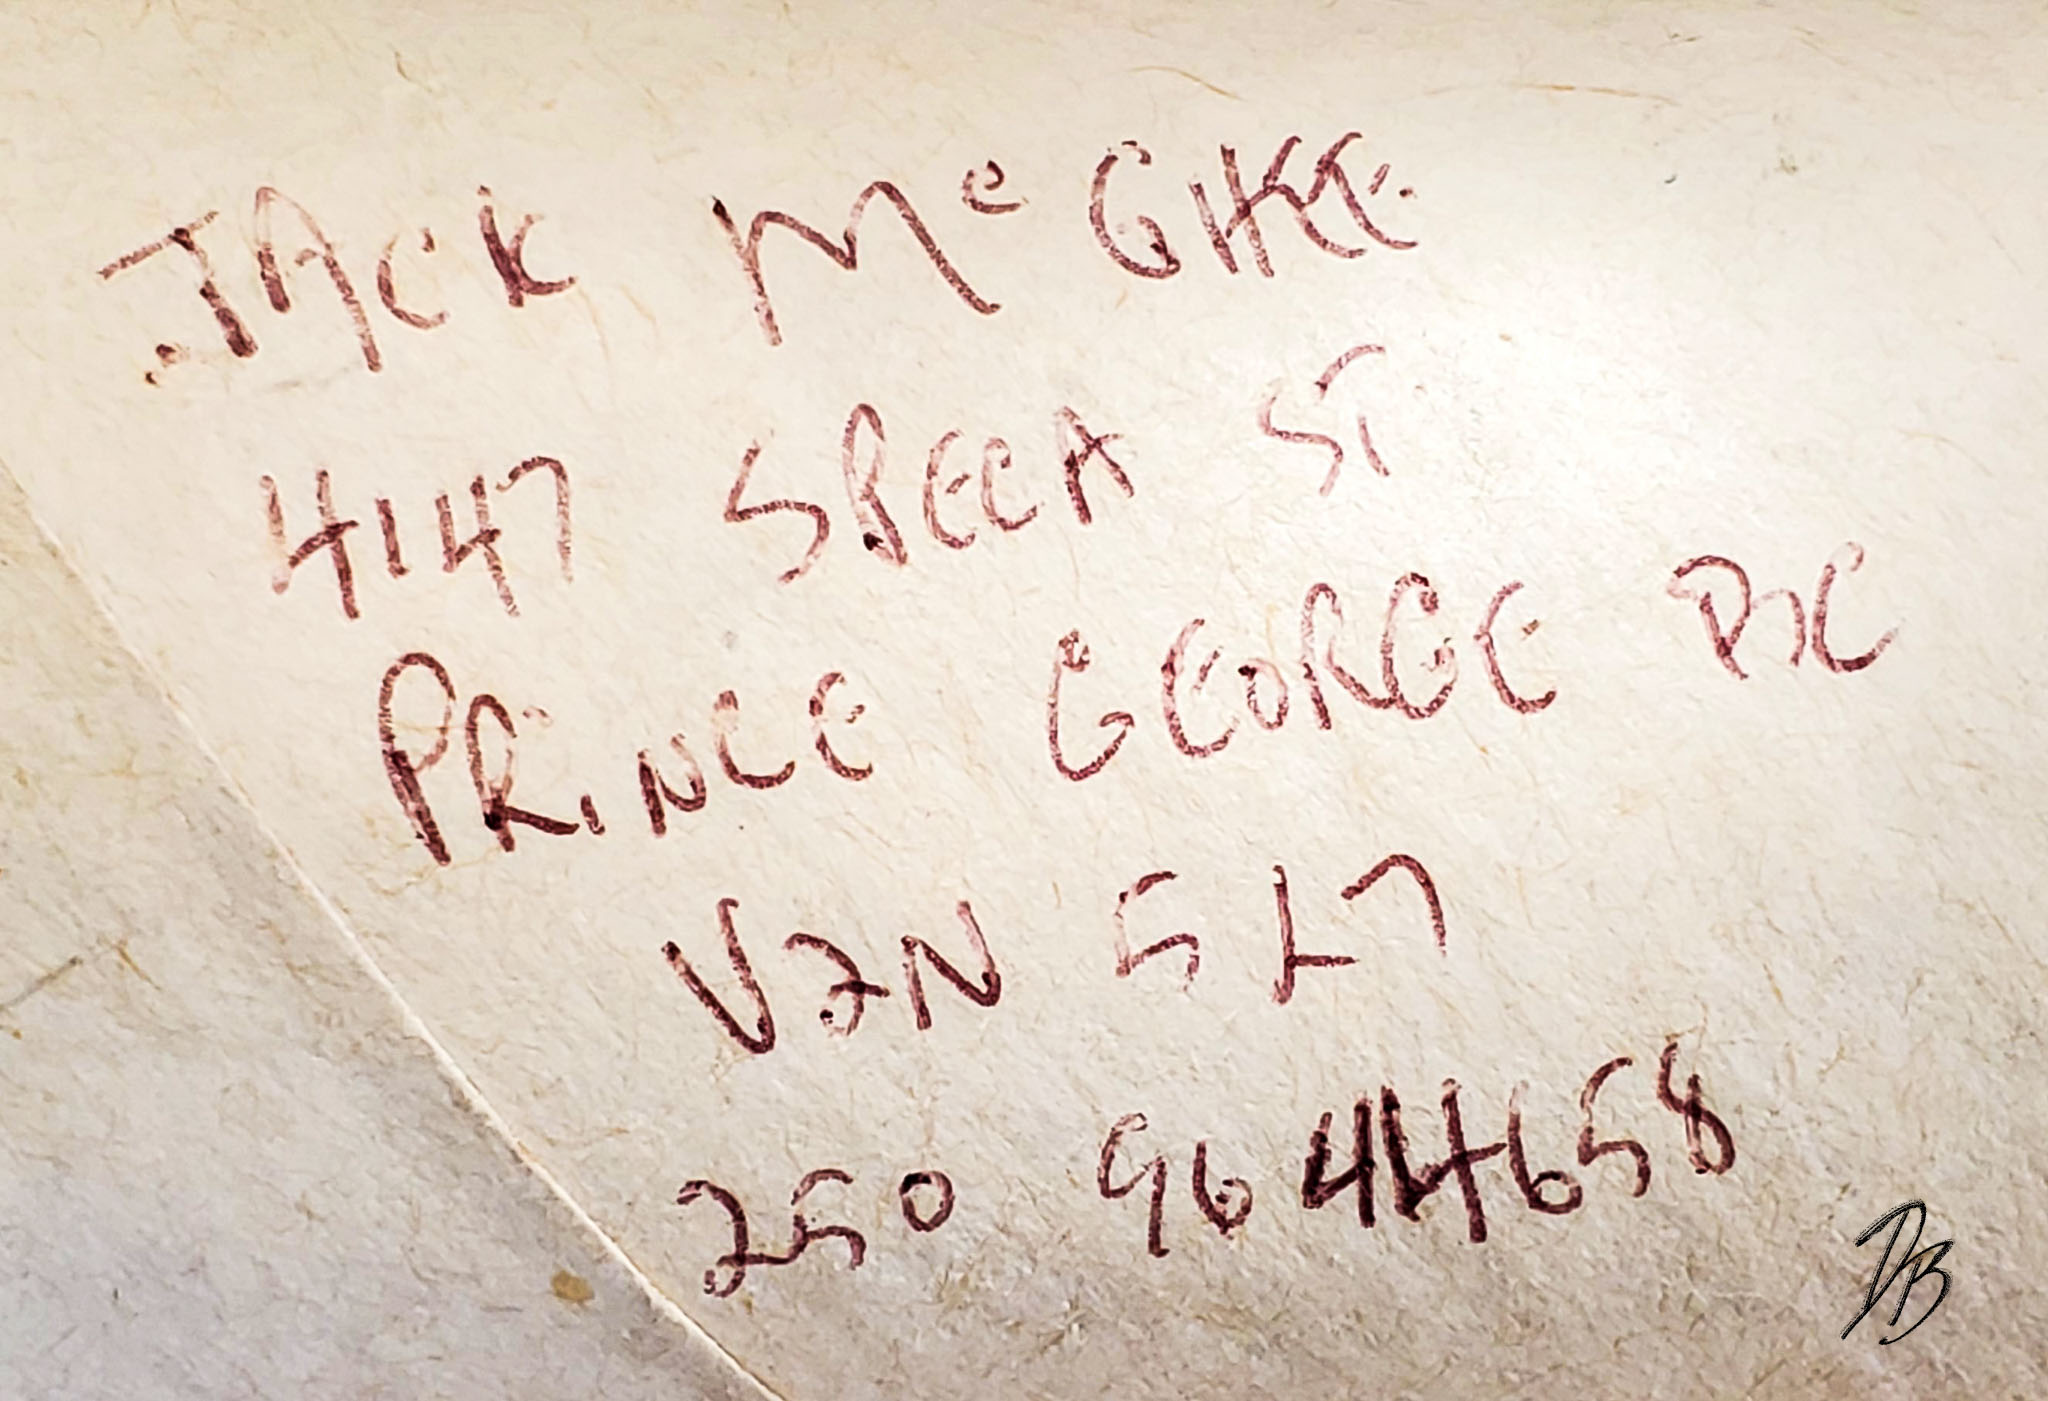 JACK McGHEE
4147 SBECA ST
PRINCE GEORGE BC
V2N 5L7
250 964 4658
DB